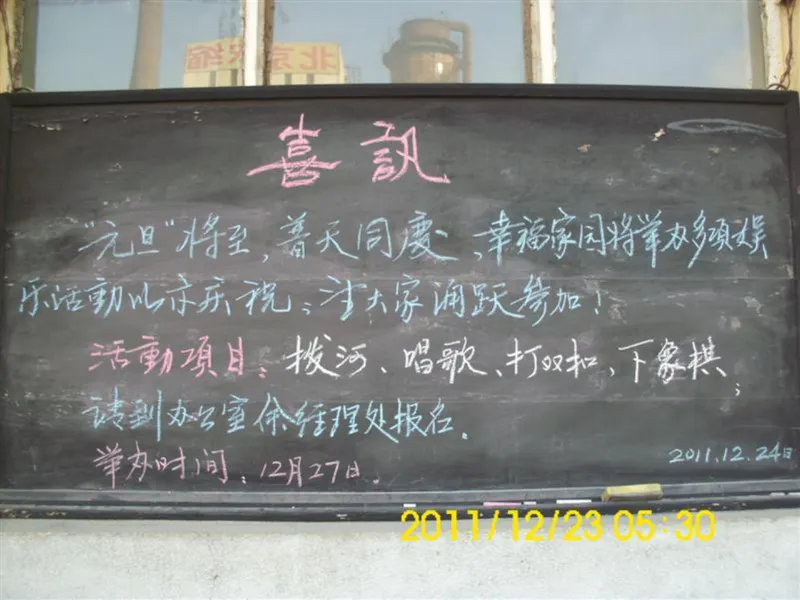 北京浓缩
喜訊
"元旦"将至,普天同慶,幸福家园将举办多项娱
乐活動以示庆祝;望大家涌跃参加!
活動項目:拨河、唱歌、打双扣、下象棋;
请到办公室余经理处报名。
举办时间:12月27日。
2011.12.24日
2011/12/23 05:30